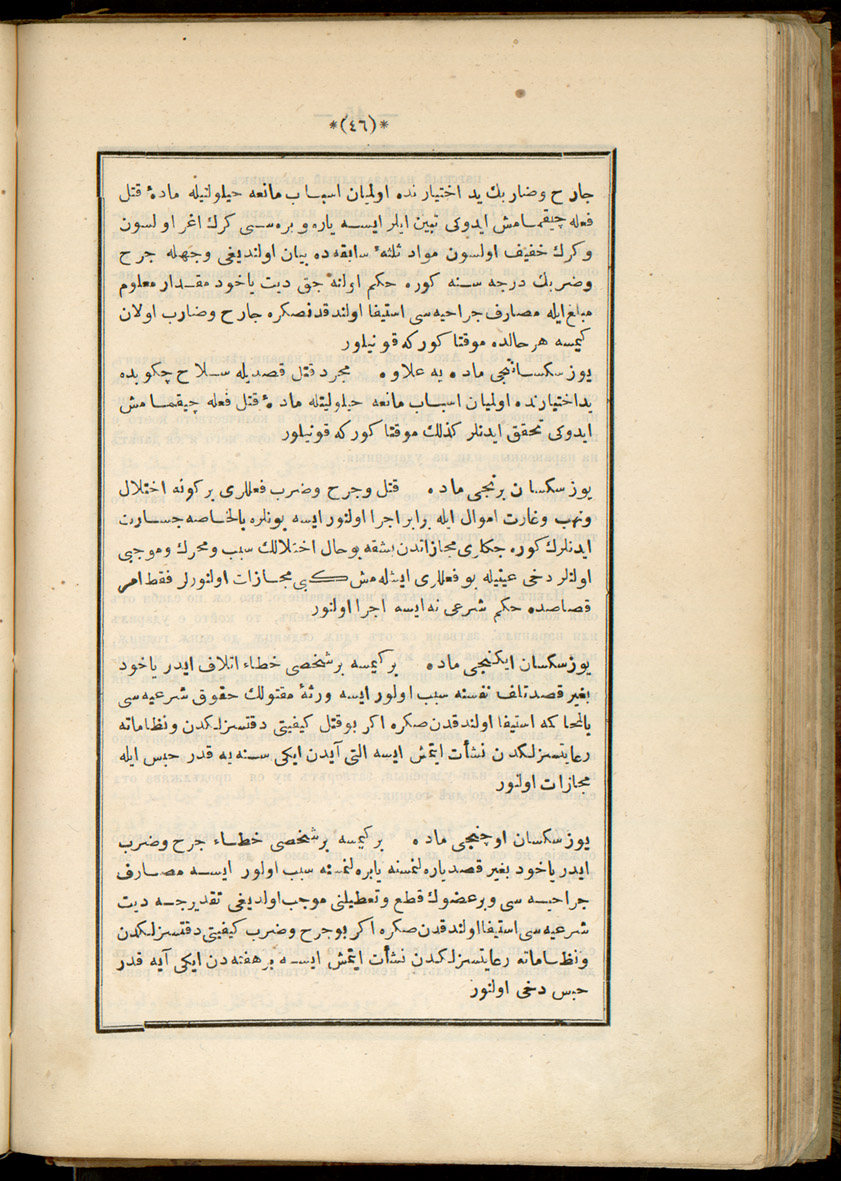 *(٤٦)*
جارح وضاربك يد اختيارنده اولميان اسباب مانعه حيلولتيله مادهٔ قتل
فعله چيقمامش ايدوكى تبين ايلر ايسه ياره و بره‌سى كرك اغر اولسون
وكرك خفيف اولسون مواد ثلثهٔ سابقه‌ده بيان اولنديغى وجهله جرح
وضربك درجه سنه كوره حكم اولنه جق ديت ياخود مقدار معلوم
مبلغ ايله مصارف جراحيه‌سى استيفا اولندقدنصكره جارح وضارب اولان
كيمسه هر حالده موقتا كوركه قونيلور
يوز سكساننجى ماده يه علاوه مجرد قتل قصديله سلاح چكوبده
يداختيارنده اولميان اسباب مانعه حيلولتيله مادهٔ قتل فعله چيقمامش
ايدوكى تحقق ايدنلر كذلك موقتا كوركه قونيلور
يوز سكسان برنجى ماده قتل وجرح وضرب فعللرى بركونه اختلال
ونهب وغارت اموال ايله برابر اجرا اولنور ايسه بونلره بالخاصه جسارت
ايدنلرك كوره جكلرى مجازاتدن بشقه بوحال اختلالك سبب ومحرك وموجبى
اولنلر دخى عينيله بو فعللرى ايشله‌مش كبى مجازات اولنورلر فقط امر
قصاصده حكم شرعى نه ايسه اجرا اولنور
يوز سكسان ايكنجى ماده بر كيمسه بر شخصى خطاء اتلاف ايدر ياخود
بغير قصد تلف نفسنه سبب اولور ايسه ورثهٔ مقتولك حقوق شرعيه‌سى
بالمحاكمه استيفا اولندقدن صكره اكر بوقتل كيفيتى دقتسزلكدن ونظاماته
رعايتسزلكدن نشأت ايتمش ايسه التى آيدن ايكى سنه‌يه قدر حبس ايله
مجازات اولنور
يوز سكسان اوچنجى ماده بر كيمسه بر شخصى خطاء جرح وضرب
ايدر ياخود بغير قصد ياره‌لنمسنه يا بره‌لنمسنه سبب اولور ايسه مصارف
جراحيه سى و بر عضوك قطع وتعطيلنى موجب اولديغى تقديرجه ديت
شرعيه‌سى استيفا اولندقدن صكره اكر بو جرح وضرب كيفيتى دقتسزلكدن
ونظاماته رعايتسزلكدن نشأت ايتمش ايسه بر هفته‌دن ايكى آيه قدر
حبس دخى اولنور